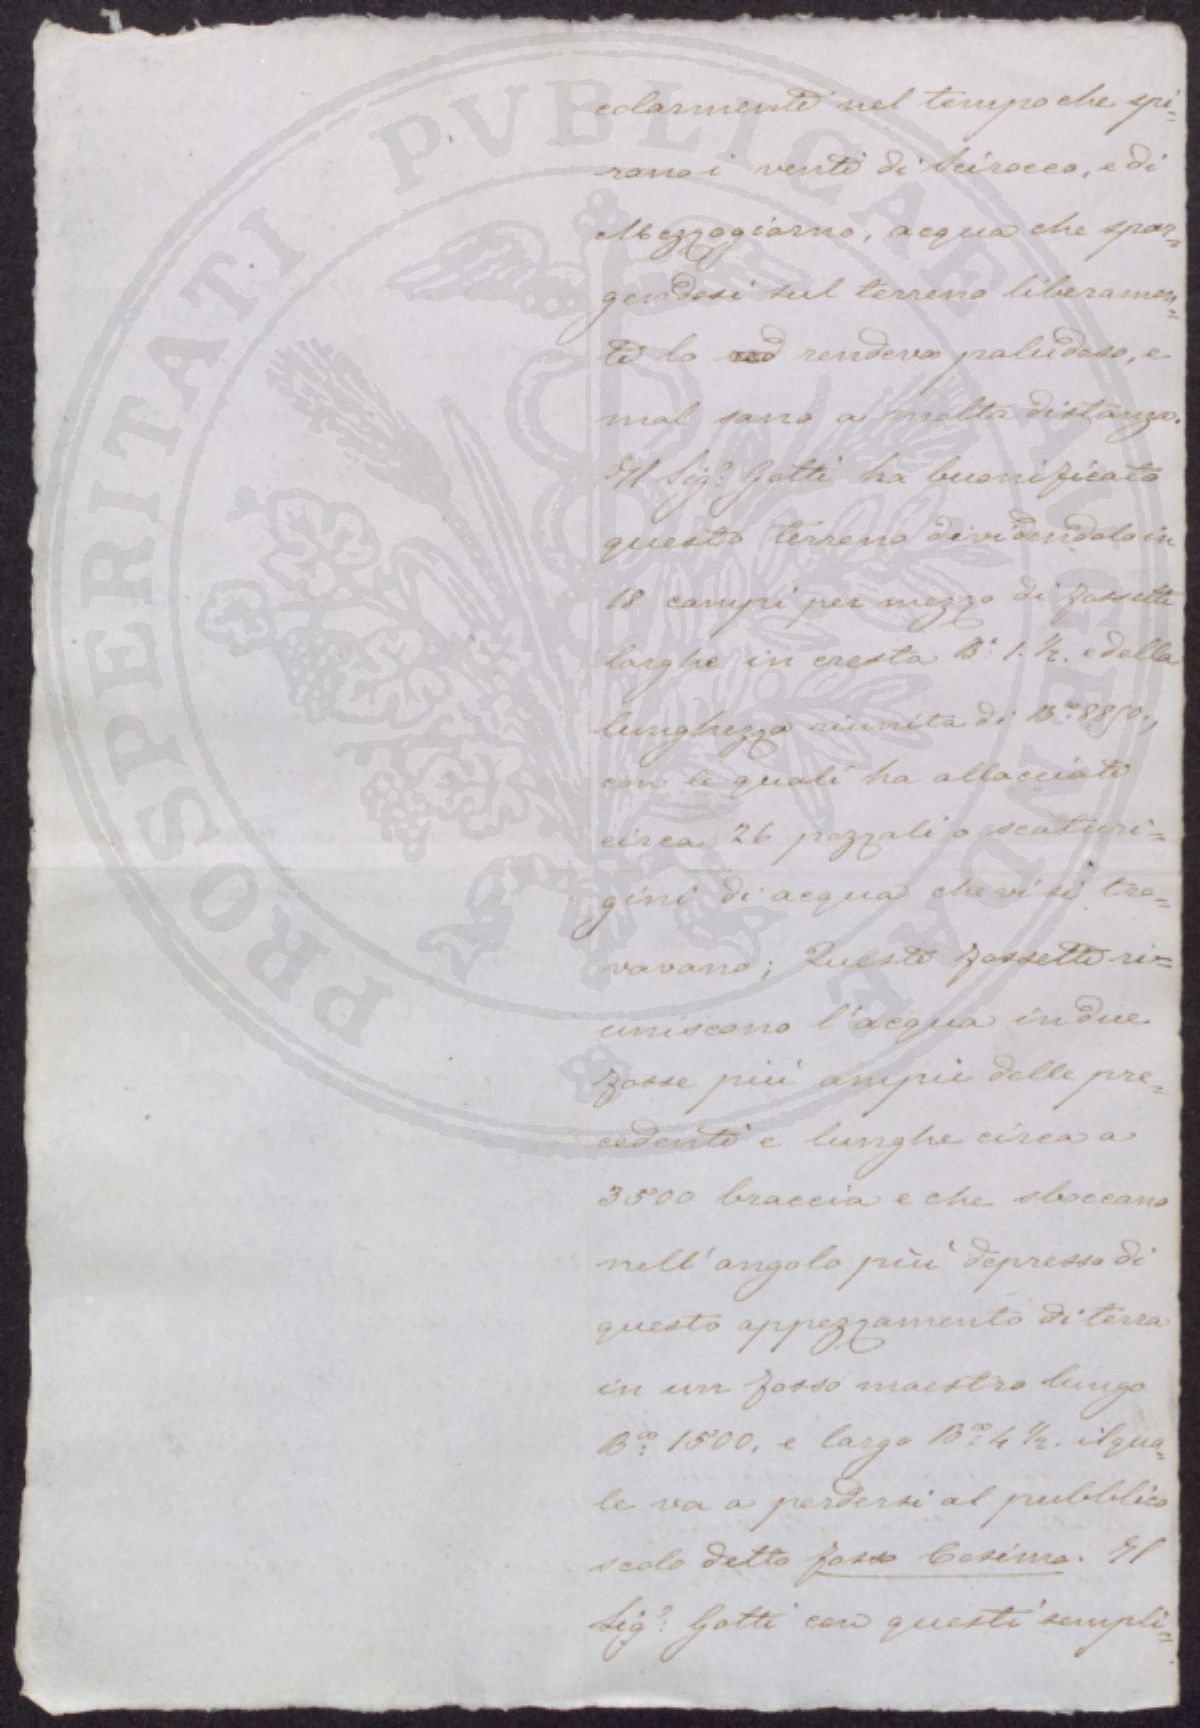 PROSPERITATI PVBLICAE AVGENDAE
colarmente nel tempo che spi=
rano i venti di Scirocco, e di
Mezzogiorno, acqua che spar=
gendosi sul terreno liberamen=
te lo rendeva paludoso, e
mal sano a molta distanza.
Il Sig.r Gotti ha buonificato
questo terreno dividendolo in
18 campi per mezzo di fossette
larghe in cresta B.a 1. ½. e della
lunghezza riunita di B.a 8850.,
con le quali ha allacciate
circa 26 pozzali o scaturi=
gini di acqua che vi si tro=
vavano; Queste fossette ri=
uniscono l'acqua in due
fosse più ampie delle pre=
cedenti e lunghe circa a
3500 braccia e che sboccano
nell'angolo più depresso di
questo appezzamento di terra
in un fosso maestro lungo
B.a 1500, e largo B.a 4 ½. il qua=
le va a perdersi al pubblico
scolo detto fosso Cosimo. Il
Sig.r Gotti con questi sempli=